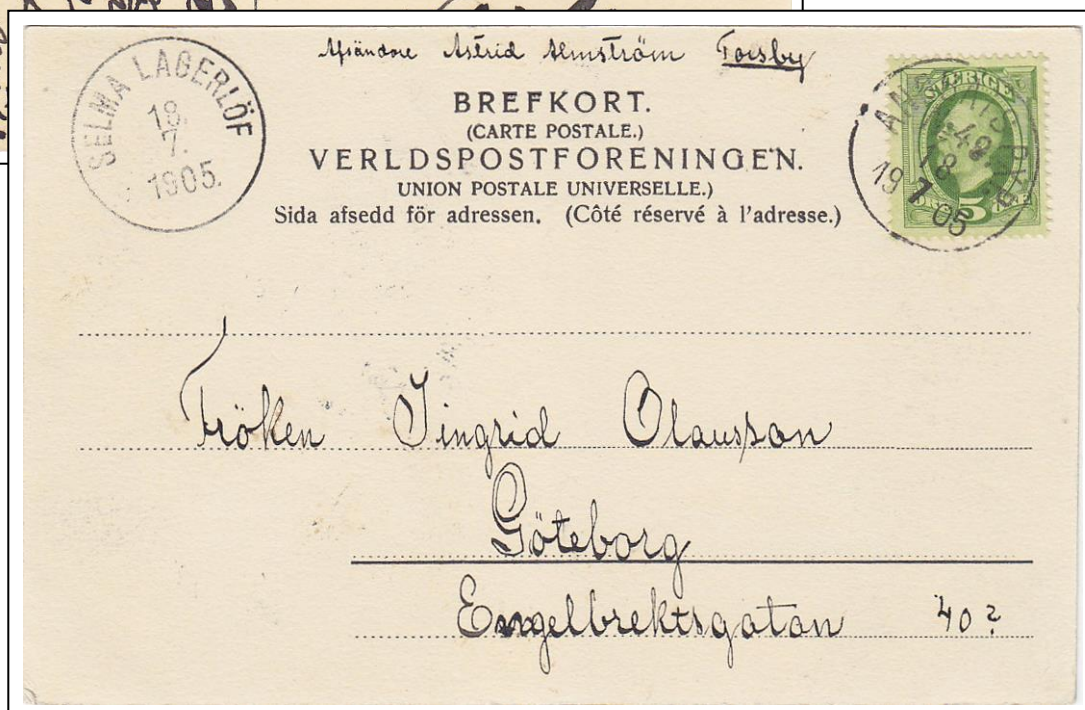 Afsändare Astrid Almström Torsby
SELMA LAGERLÖF
18.
7.
1905.
BREFKORT.
(CARTE POSTALE.)
VERLDSPOSTFORENINGEN.
UNION POSTALE UNIVERSELLE.)
Sida afsedd för adressen. (Côté réservé à l'adresse.)
SVERIGE
5
18
7
19 05
Fröken Iingrid Olausson
Göteborg
Engelbrektsgatan 40?